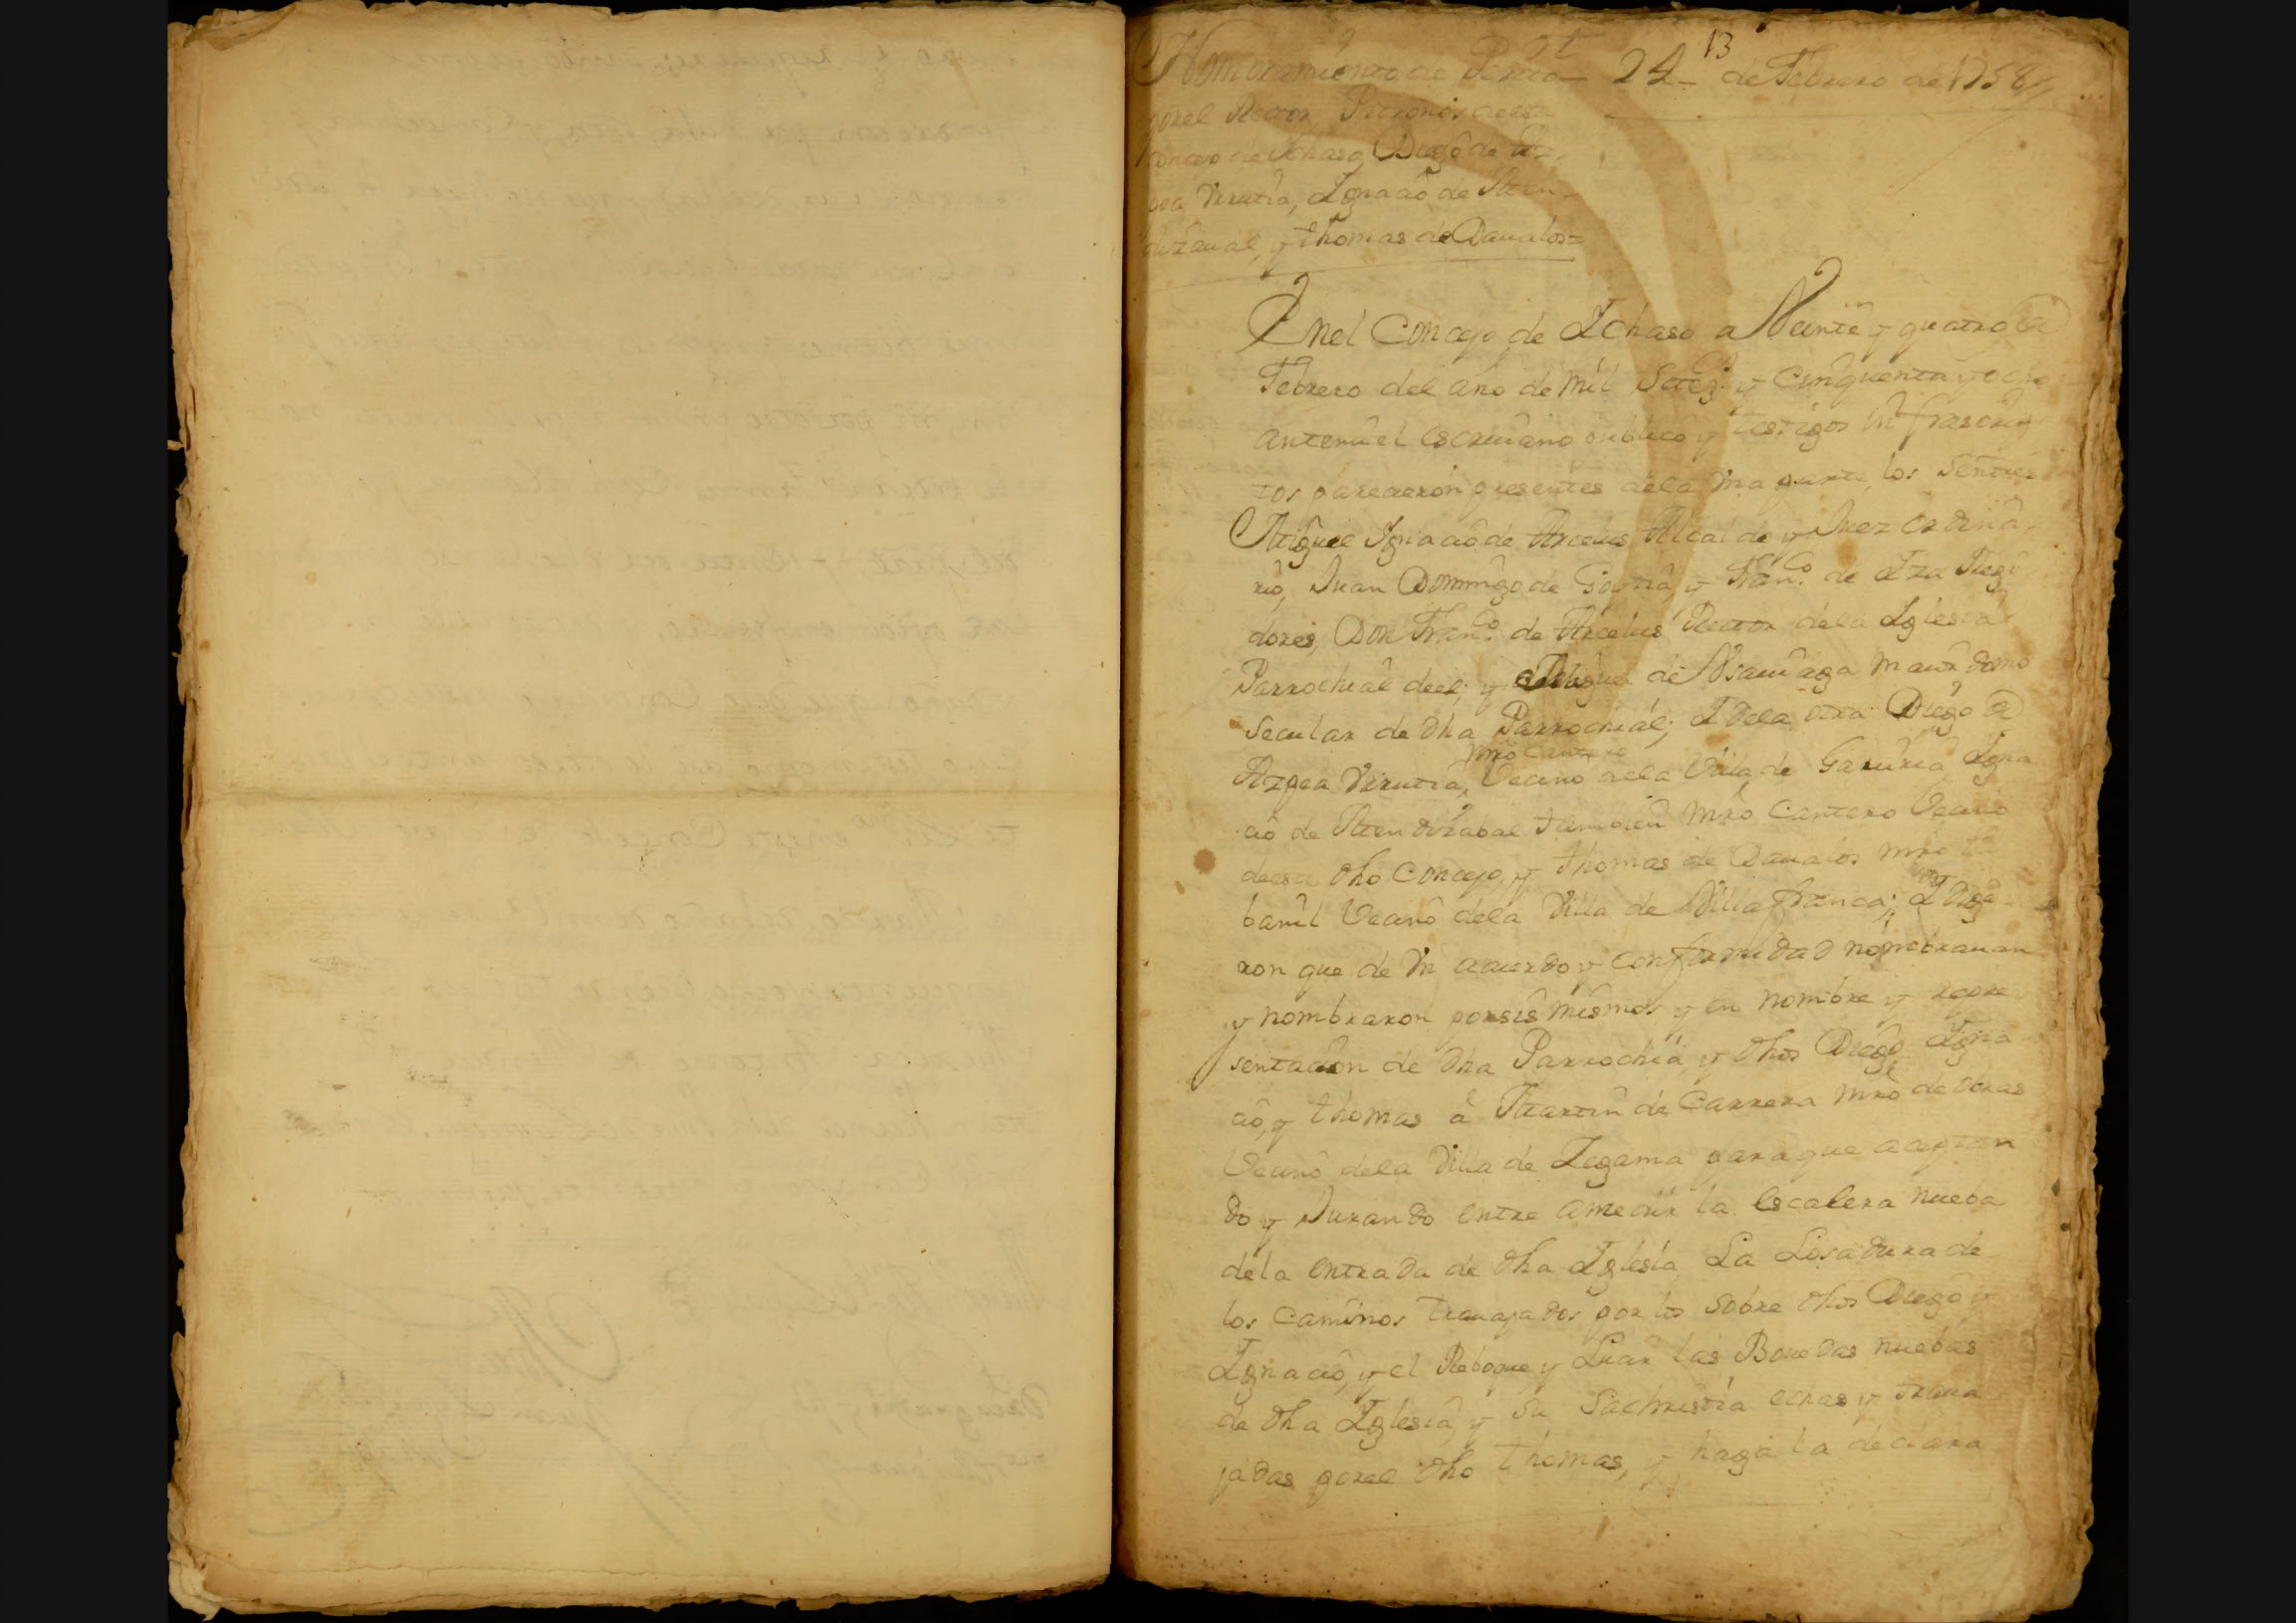 13
Nombramiento de Perito 24 de Febrero de 1758
por el Rector Patronos deest
concejo de Ichaso, Diego de Az
pea Vrrutia, Ignacio de Aren
dizaual, y Thomas de Daualos=
Enel Concejo de Ichaso a Veinte y quatro de
Febrero del año de mil Setez.s y Cinquenta y ocho
antemi el escriuano publico y testigos infrascrip
tos parecieron presentes dela Vna parte, los Señores
Miguel Ignacio de Arcelus Alcalde y Juez ordina
rio, Juan Domingo de Goitia, y Fran.co de Iza Regi
dores, Don Fran.co de Arcelus Rector dela Iglesia
Parrochial deel; y Miguel de Vsauiaga maiordomo
Secular de dha Parrochial; I dela otra Diego de
mro Cantero
Azpea Vrrutia, Vecino dela Villa de Gauiria, Igna
cio de Arendizabal tambien mro Cantero Vecino
deeste dho Concejo, y Thomas de Daualos mro
banil Vecino dela Villa de Villafranca; I dige
ron que de Vn acuerdo y conformidad nombrauan
y nombraron porsis mismos y en nombre y repre
sentacion de dha Parrochia, y dhos Diego, Igna
cio, y Thomas à Martin de Carrera mro de obras
Vecino dela Villa de Zegama paraque aceptan
do y Jurando entre amedir la escalera nueba
dela entrada de dha Iglesia, La Losadura de
los caminos trauajados por los sobre dhos Diego y
Ignacio, y el Reboque y Luzir las Bouedas nuebas
de dha Iglesia, y su Sachristia echas y traua
jadas porel dho Thomas, y haga la declara